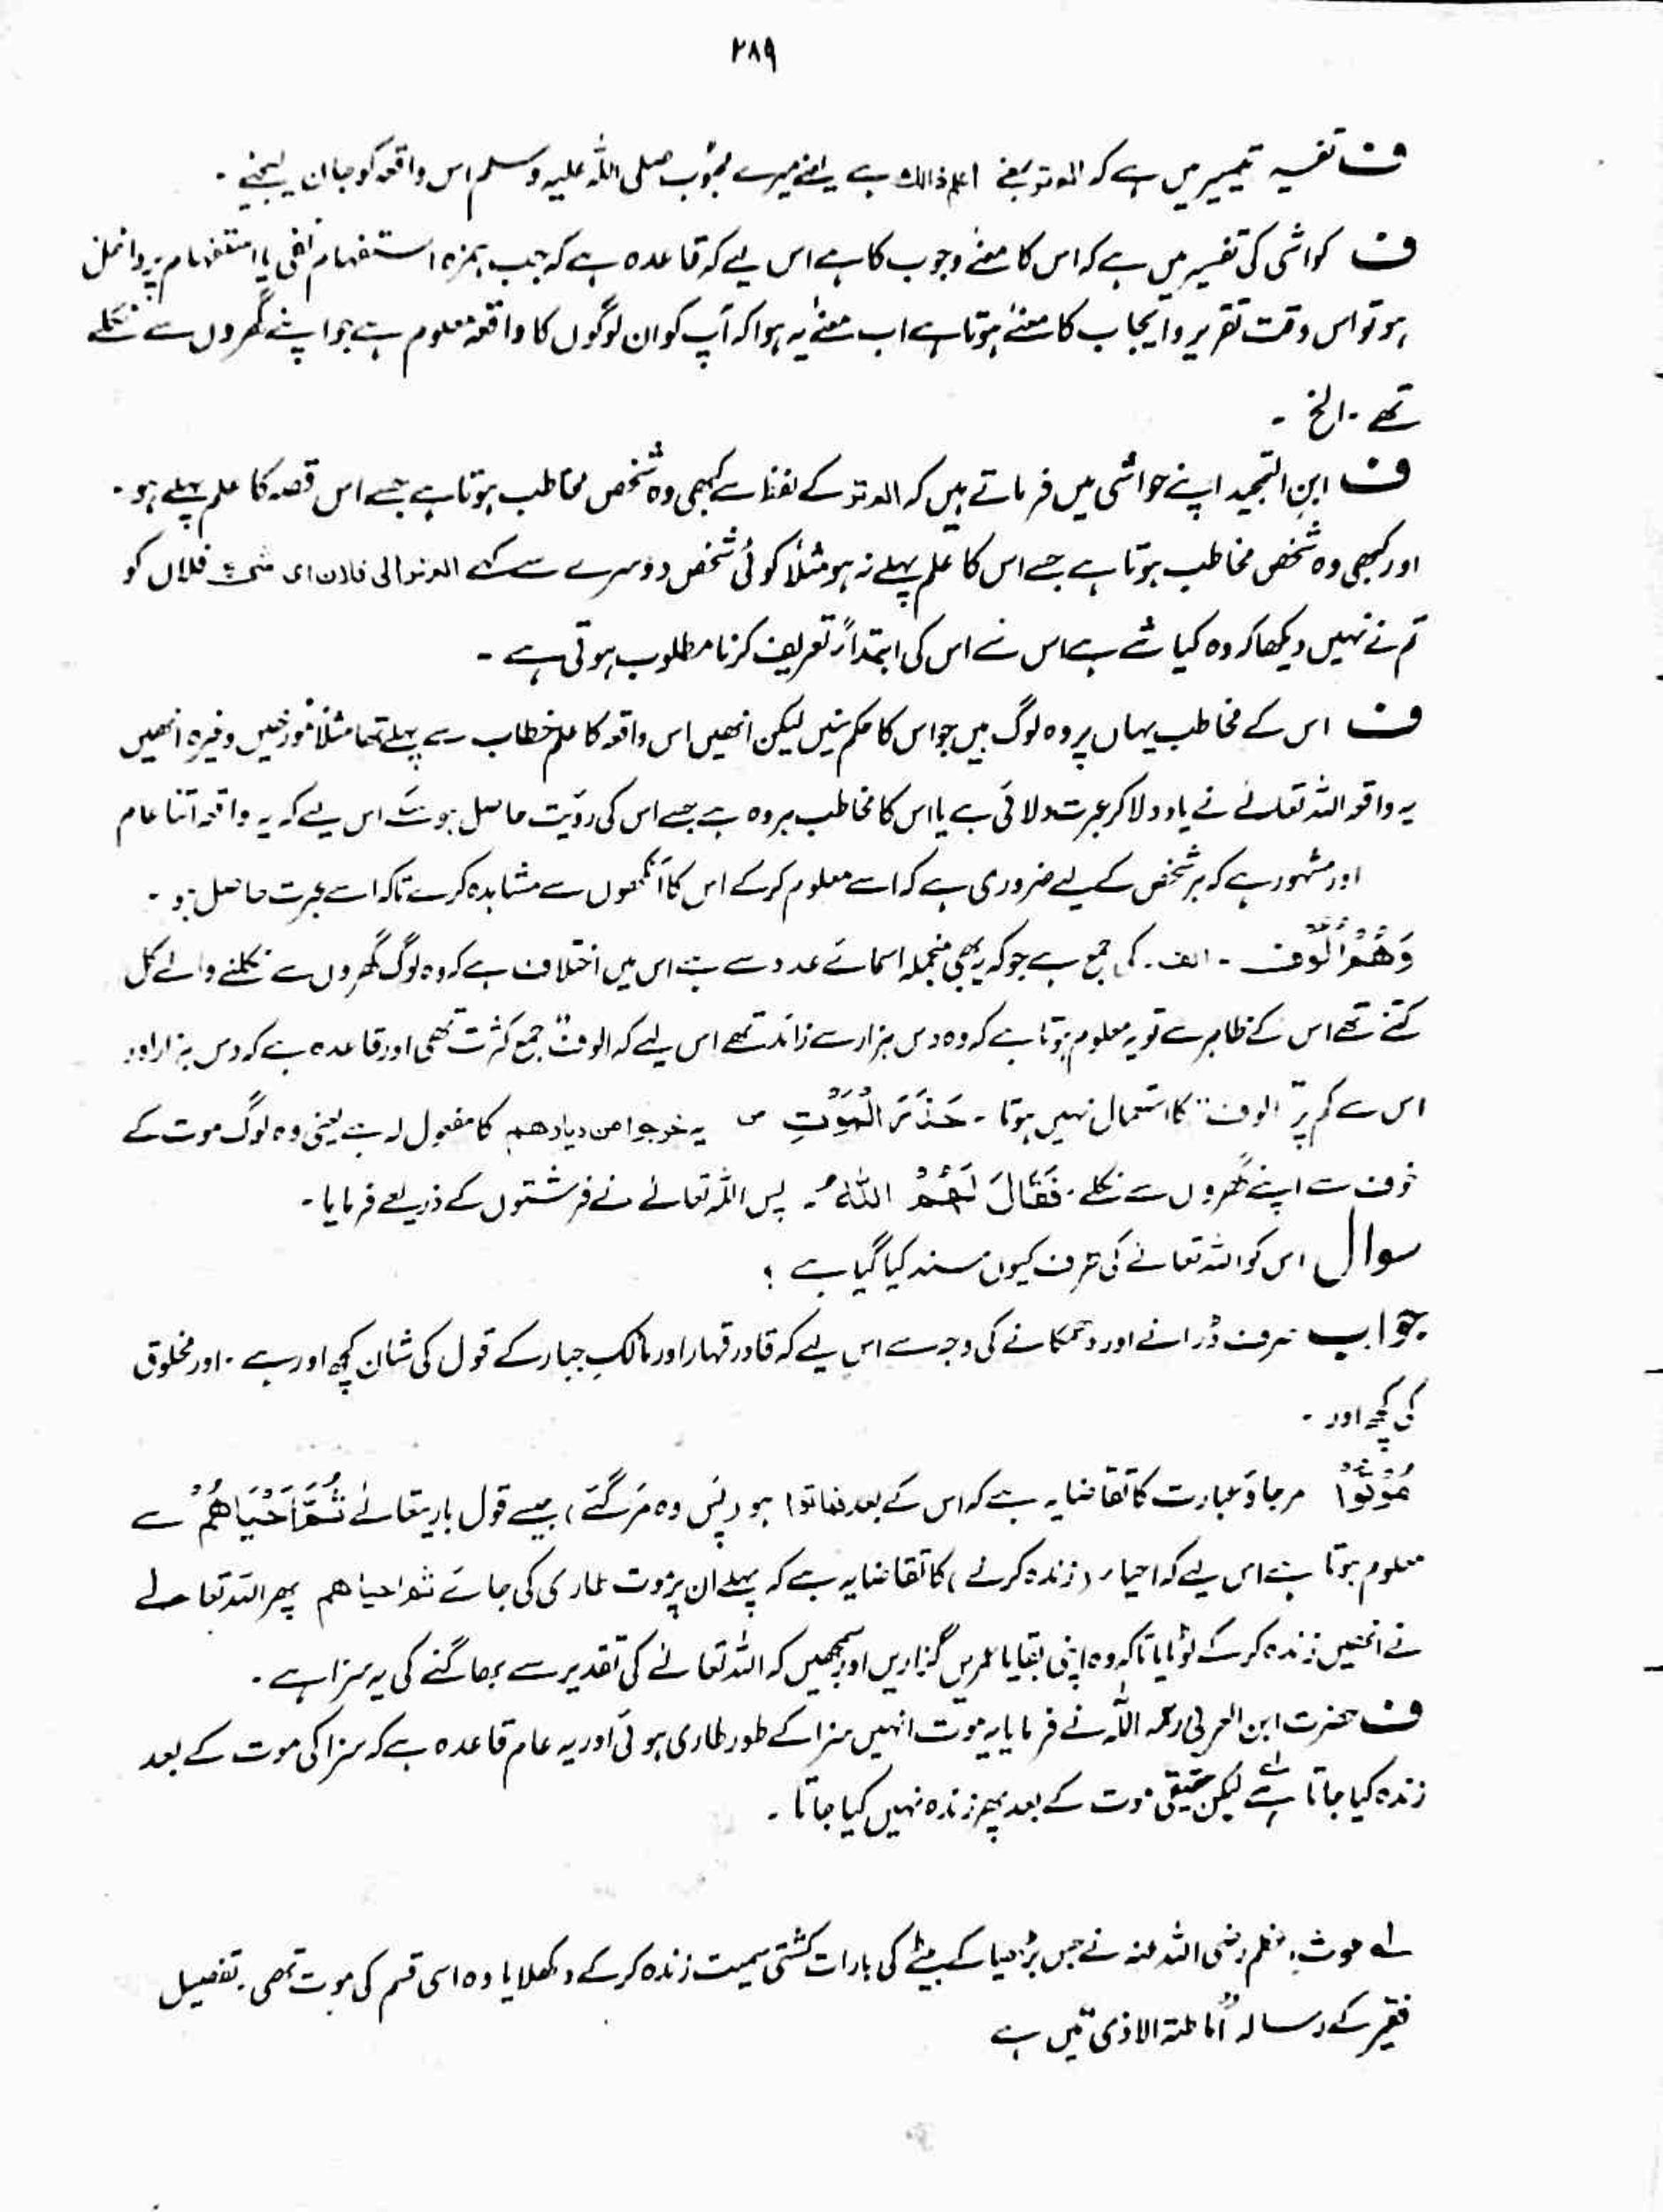 ۲۸۹
ف تفسیر تیسیر میں ہے کہ الم تر بمعنے اعلم ذالک ہے یعنے میرے محبوب صلی اللہ علیہ وسلم اس واقعہ کو جان لیجئے ۔
ف کواشی کی تفسیر میں ہے کہ اس کا معنے وجوب کا ہے اس لیے کہ قاعدہ ہے کہ جب ہمزہ استفہام نفی یا استفہام پر داخل
ہو تو اس وقت تقریر و ایجاب کا معنے ہوتا ہے اب معنے یہ ہوا کہ آپ کو ان لوگوں کا واقعہ معلوم ہے جو اپنے گھروں سے نکلے
تھے ۔ الخ ۔
ف ابن التمجید اپنے حواشی میں فرماتے ہیں کہ الم تر کے لفظ سے کبھی وہ شخص مخاطب ہوتا ہے جسے اس قصہ کا علم پہلے ہو ۔
اور کبھی وہ شخص مخاطب ہوتا ہے جسے اس کا علم پہلے نہ ہو مثلاً کوئی شخص دوسرے سے کہے الم تر الی فلان ای شیٔ فلاں کو
تم نے نہیں دیکھا کہ وہ کیا شے ہے اس نے اس کی ابتداءً تعریف کرنا مطلوب ہوتی ہے ۔
ف اس کے مخاطب یہاں پر وہ لوگ ہیں جو اس کا حکم سنیں لیکن انھیں اس واقعہ کا علم خطاب سے پہلے تھا مثلاً مورخین وغیرہ انھیں
یہ واقعہ اللہ تعالےٰ نے یاد دلا کر عبرت دلائی ہے یا اس کا مخاطب ہر وہ ہے جسے اس کی رؤیت حاصل ہو اس لیے کہ یہ واقعہ اتنا عام
اور مشہور ہے کہ ہر شخص کے لیے ضروری ہے کہ اسے معلوم کر کے اس کا آنکھوں سے مشاہدہ کرے تاکہ اسے عبرت حاصل ہو ۔
وَهُمْ اُلُوْفٌ ۔ الف ۔ کی جمع ہے جو کہ یہ بھی منجملہ اسمائے عدد سے ہے اس میں اختلاف ہے کہ وہ لوگ گھروں سے نکلنے والے کل
کتنے تھے اس کے ظاہر سے تو یہ معلوم ہوتا ہے کہ وہ دس ہزار سے زائد تھے اس لیے کہ الوف جمع کثرت تھی اور قاعدہ ہے کہ دس ہزار اور
اس سے کم پر "الوف" کا استعمال نہیں ہوتا ۔ حَذَرَ الْمَوْتِ ص یہ خرجوا من دیارھم کا مفعول لہ ہے یعنی وہ لوگ موت کے
خوف سے اپنے گھروں سے نکلے ۔ فَقَالَ لَهُمُ اللّٰهُ پس اللہ تعالےٰ نے فرشتوں کے ذریعے فرمایا ۔
سوال اس کو اللہ تعالےٰ کی طرف کیوں مسند کیا گیا ہے ؟
جواب صرف ڈرانے اور دھمکانے کی وجہ سے اس لیے کہ قادر قہار اور مالکِ جبار کے قول کی شان کچھ اور ہے ۔ اور مخلوق
کی کچھ اور ۔
مُوْتُوْا مر جاؤ عبارت کا تقاضا یہ ہے کہ اس کے بعد فماتوا ہو (پس وہ مر گئے) جیسے قول باریتعالےٰ ثُمَّ اَحْیَاهُمْ سے
معلوم ہوتا ہے اس لیے کہ احیاء (زندہ کرنے) کا تقاضا یہ ہے کہ پہلے ان پر موت طاری کی جائے ثم احیاھم پھر اللہ تعالےٰ
نے انھیں زندہ کر کے لوٹایا تاکہ وہ اپنی بقایا عمریں گزاریں اور سمجھیں کہ اللہ تعالےٰ کی تقدیر سے بھاگنے کی یہ سزا ہے ۔
ف حضرت ابن العربی رحمہ اللہ نے فرمایا یہ موت انہیں سزا کے طور طاری ہوئی اور یہ عام قاعدہ ہے کہ سزا کی موت کے بعد
زندہ کیا جاتا ہے لے لیکن حقیقی موت کے بعد پھر زندہ نہیں کیا جاتا ۔
لے غوث اعظم رضی اللہ عنہ نے جس بڑھیا کے بیٹے کی بارات کشتی سمیت زندہ کر کے دکھلایا وہ اسی قسم کی موت تھی ۔ تفصیل
فقیر کے رسالہ "اماطۃ الاذی" میں ہے